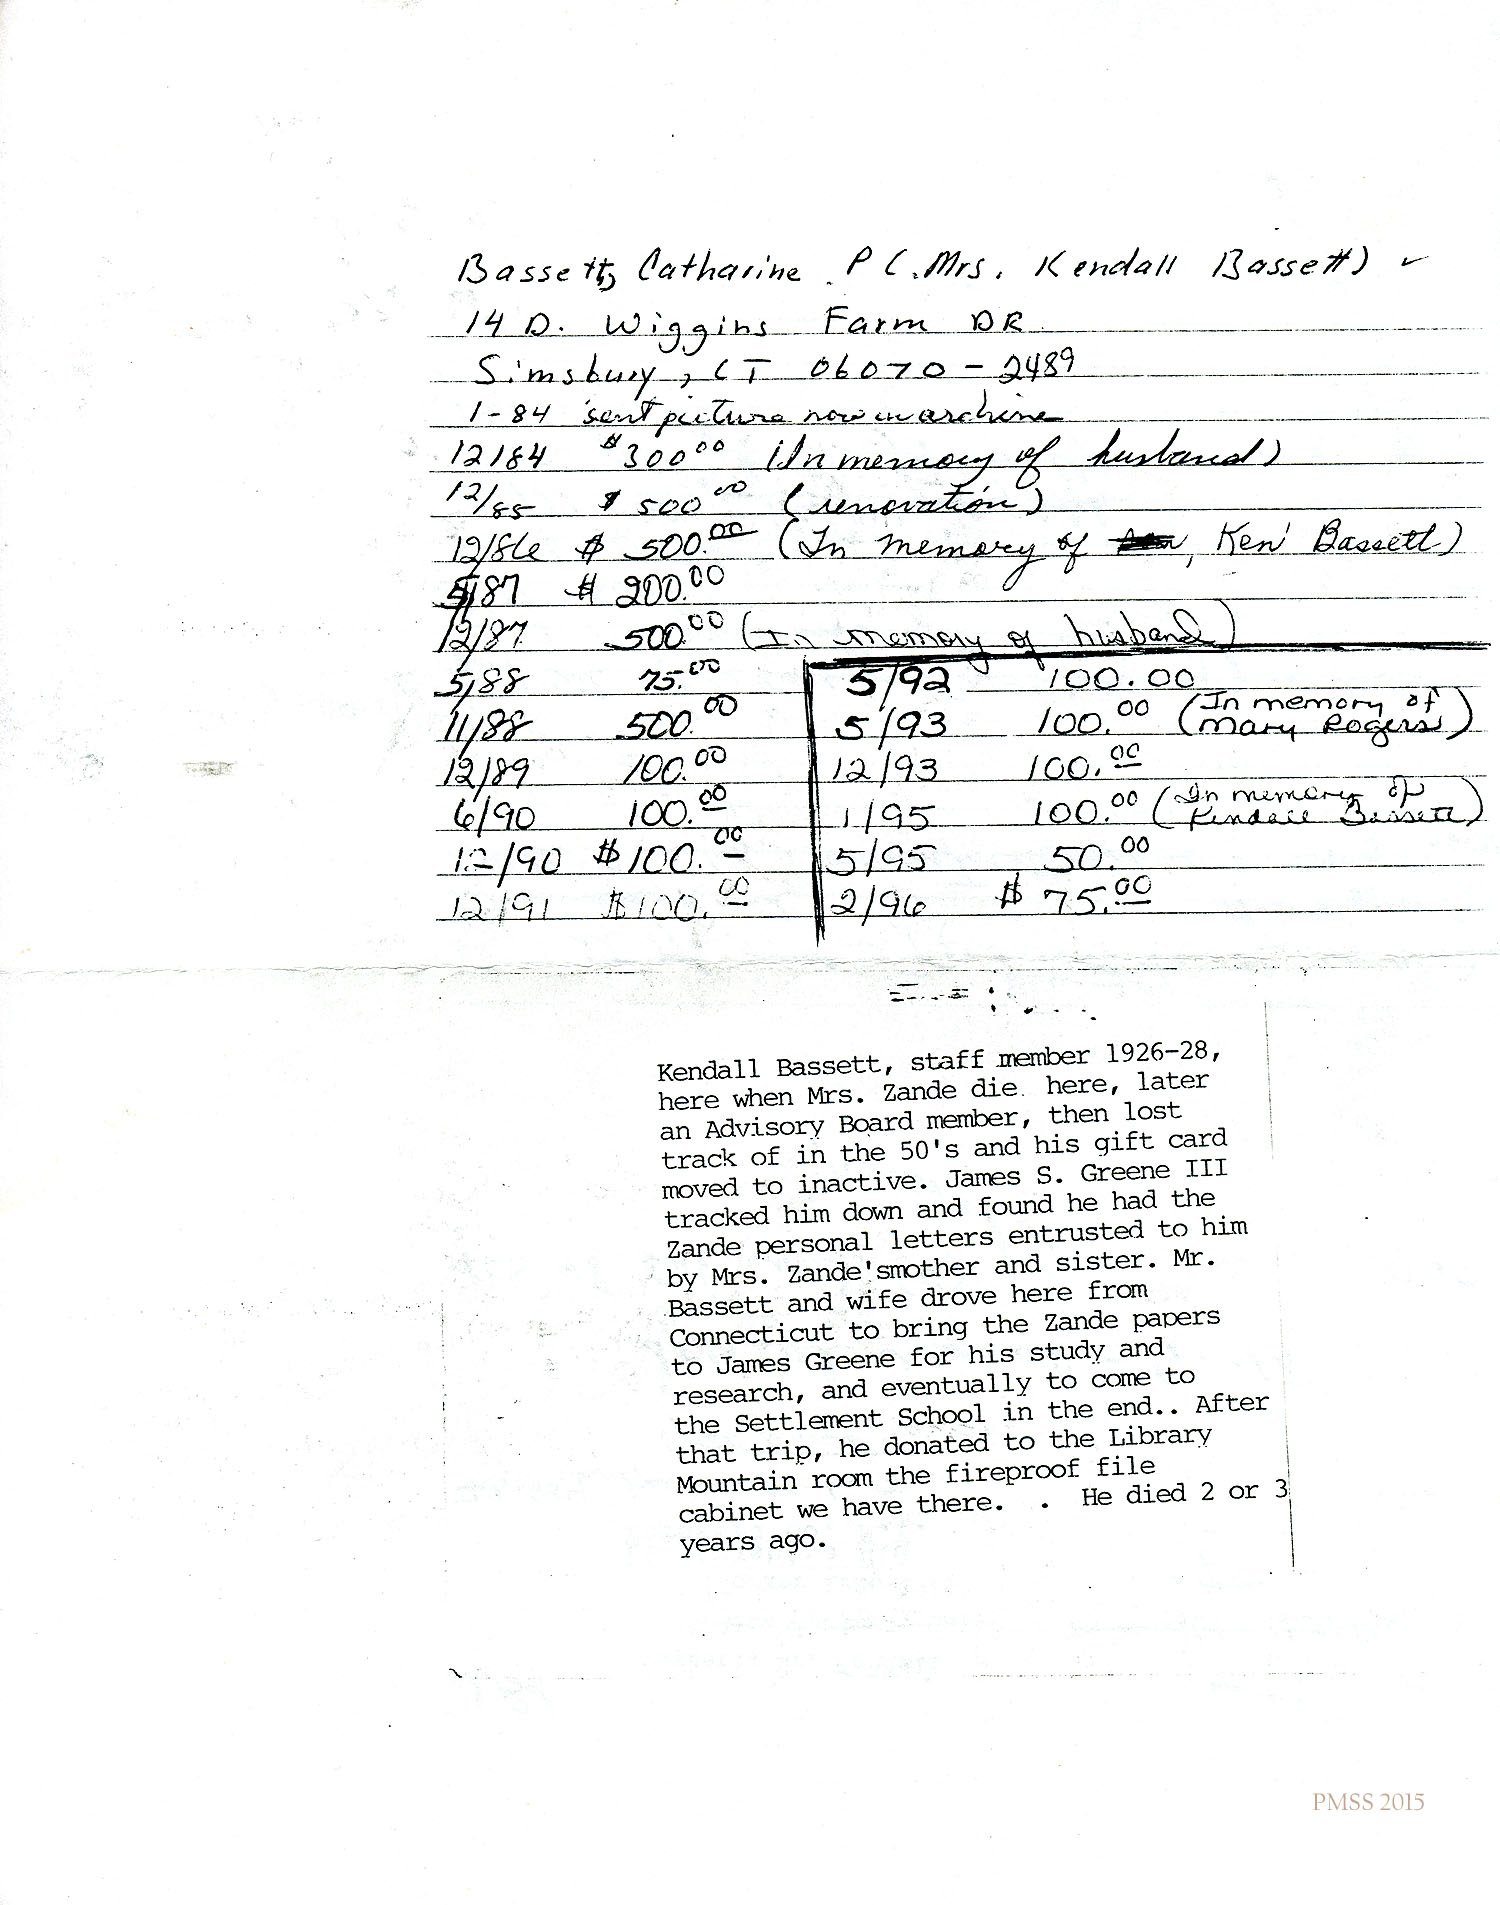 Bassett, Catharine P (Mrs. Kendall Bassett) ✓
14 D. Wiggins Farm DR
Simsbury, CT 06070-2489
1-84 sent picture now in archive
12/84 $300.00 (In memory of husband)
12/85 $500.00 (renovation)
12/86 $500.00 (In memory of Ken Bassett)
5/87 $200.00
12/87 500.00 (In memory of husband)
5/88 75.00
11/88 500.00
12/89 100.00
6/90 100.00
12/90 $100.00
12/91 $100.00
5/92 100.00
5/93 100.00 (In memory of
Mary Rogers)
12/93 100.00
1/95 100.00 (In memory of
Kendall Bassett)
5/95 50.00
2/96 $75.00
Kendall Bassett, staff member 1926-28,
here when Mrs. Zande die here, later
an Advisory Board member, then lost
track of in the 50's and his gift card
moved to inactive. James S. Greene III
tracked him down and found he had the
Zande personal letters entrusted to him
by Mrs. Zande'smother and sister. Mr.
Bassett and wife drove here from
Connecticut to bring the Zande papers
to James Greene for his study and
research, and eventually to come to
the Settlement School in the end.. After
that trip, he donated to the Library
Mountain room the fireproof file
cabinet we have there. . He died 2 or 3
years ago.
PMSS 2015